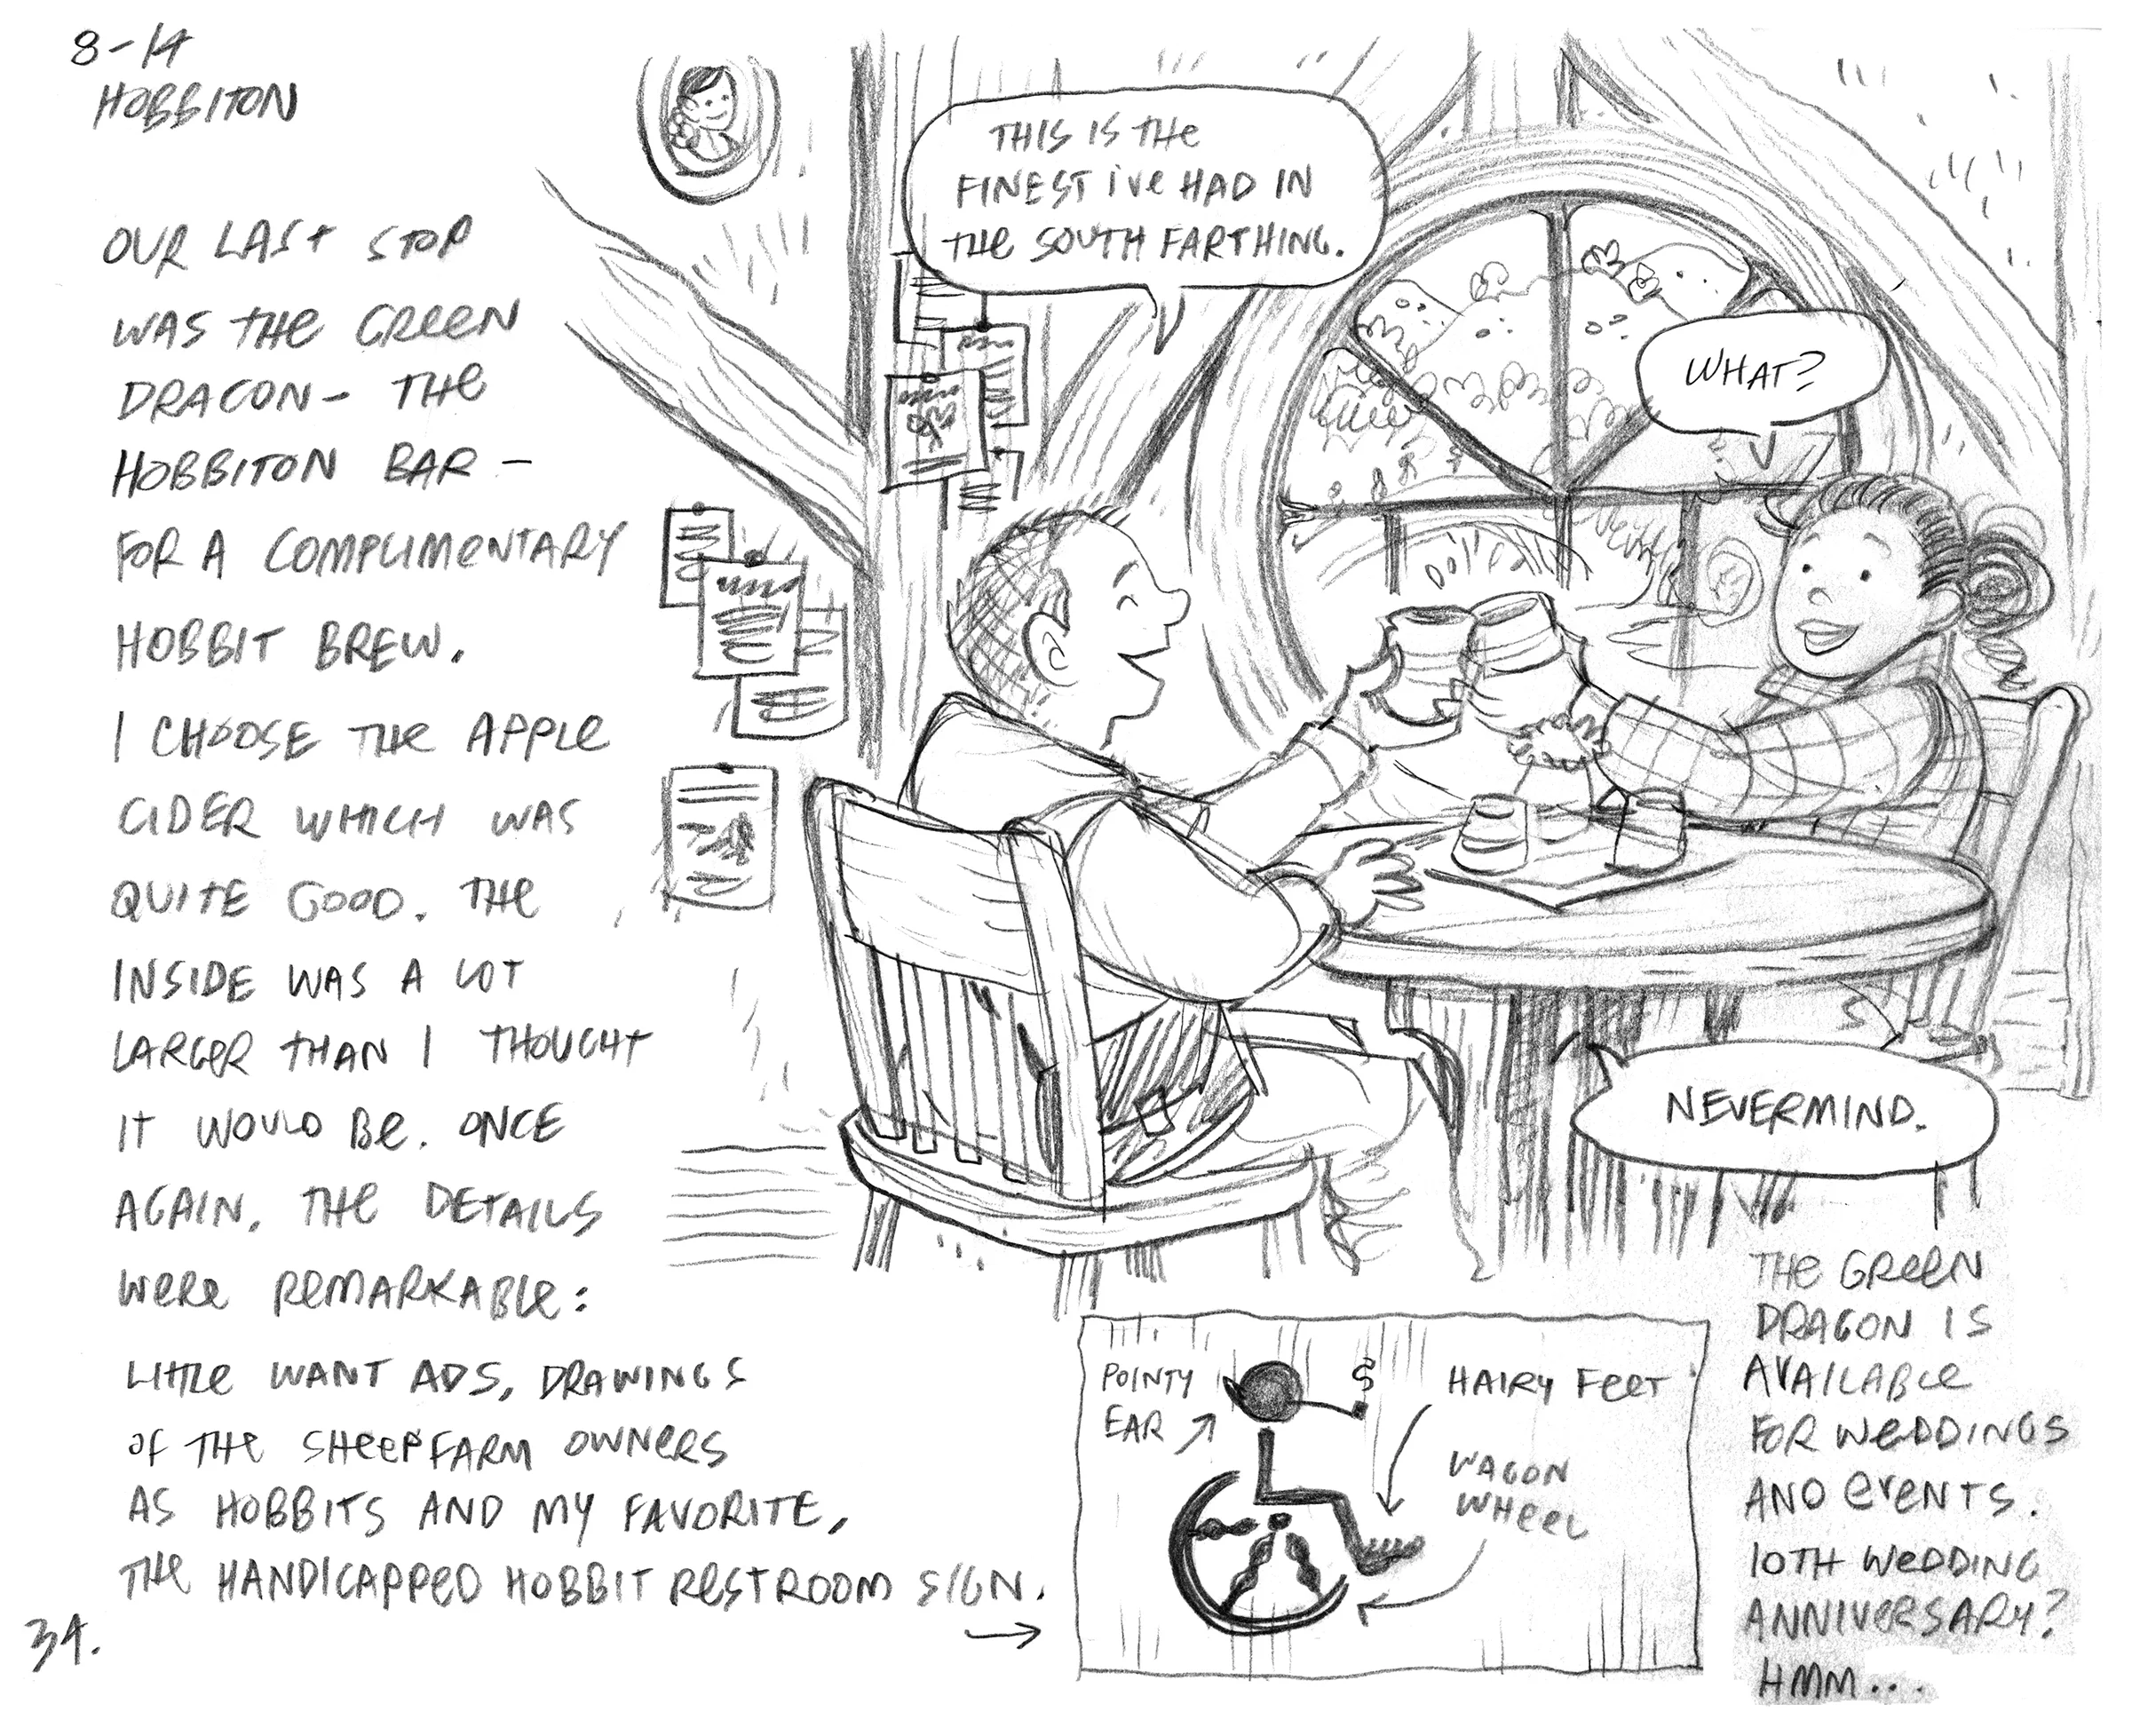 8-14
HOBBITON
OUR LAST STOP
WAS THE GREEN
DRAGON - THE
HOBBITON BAR -
FOR A COMPLIMENTARY
HOBBIT BREW.
I CHOOSE THE APPLE
CIDER WHICH WAS
QUITE GOOD. THE
INSIDE WAS A LOT
LARGER THAN I THOUGHT
IT WOULD BE. ONCE
AGAIN, THE DETAILS
WERE REMARKABLE:
LITTLE WANT ADS, DRAWINGS
OF THE SHEEP FARM OWNERS
AS HOBBITS AND MY FAVORITE,
THE HANDICAPPED HOBBIT RESTROOM SIGN.
34.
THIS IS THE
FINEST I'VE HAD IN
THE SOUTH FARTHING.
WHAT?
NEVERMIND.
POINTY
EAR
HAIRY FEET
WAGON
WHEEL
THE GREEN
DRAGON IS
AVAILABLE
FOR WEDDINGS
AND EVENTS.
10TH WEDDING
ANNIVERSARY?
HMM...